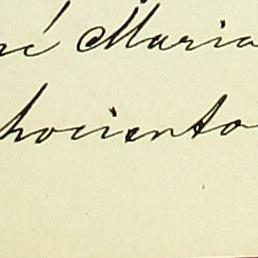 ré Maria
hociento